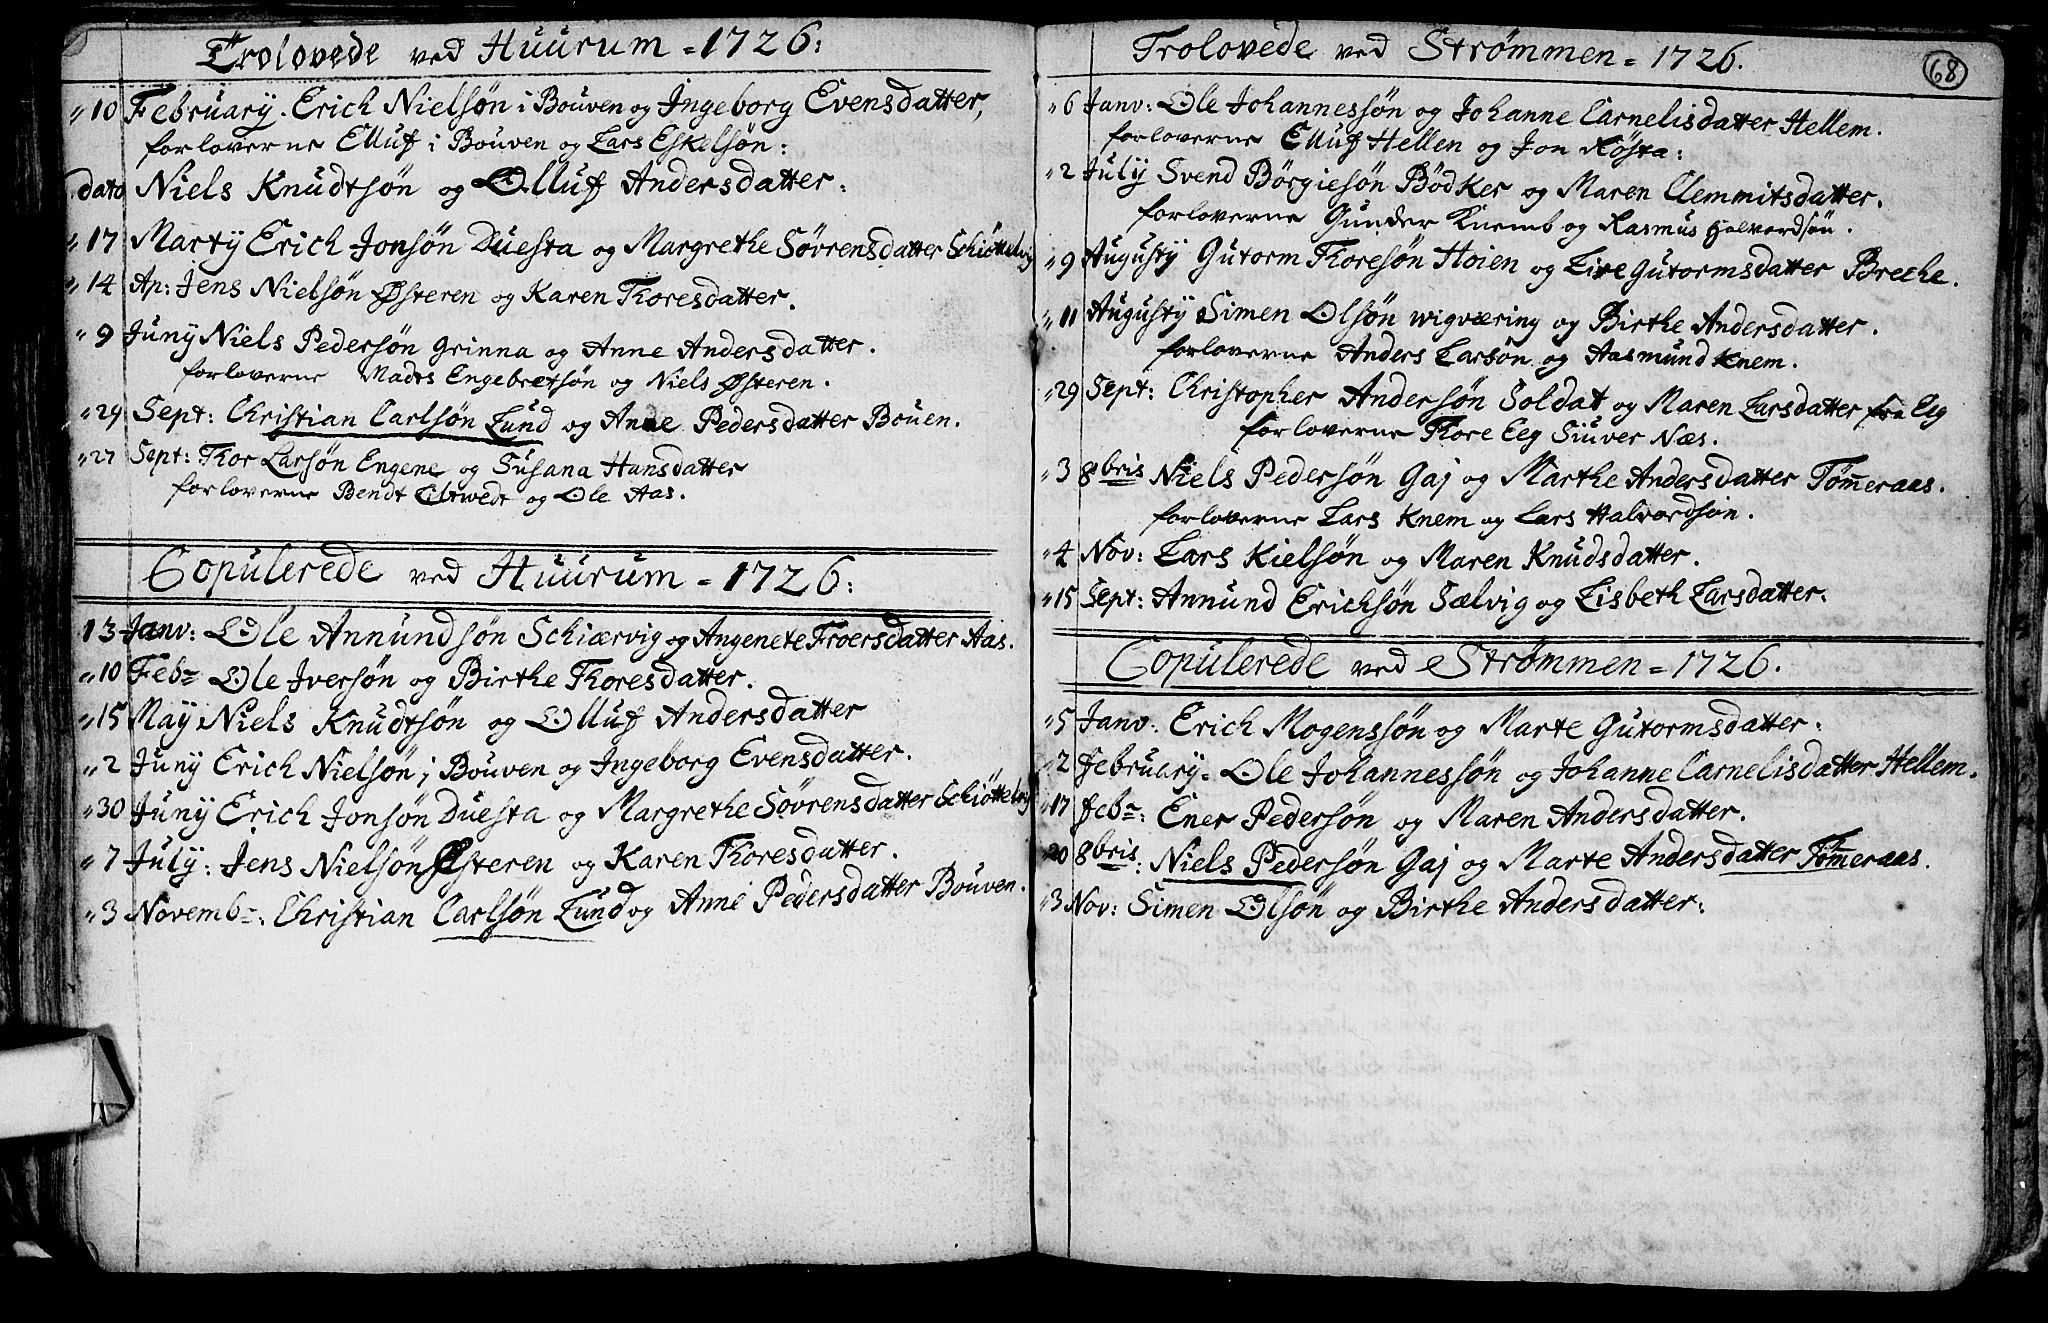 Trolovede ved Huurum = 1726:
" 10 February. Erich Nielsøn i Bouven og Ingeborg Evensdatter,
forloverne Elluf i Bouven og Lars Eskelsøn:
dato Niels Knudtsøn og Olluf Andersdatter:
" 17 Martÿ Erich Jonsøn Duesta og Margrethe Søvrensdatter Schiøttelvig
" 14 Ap: Jens Nielsøn Østeren og Karen Thoresdatter.
" 9 Junÿ Niels Pedersøn Grinna og Anne Andersdatter.
forloverne Mads Engebretsøn og Niels Østeren.
" 29 Sept: Christian Carlsøn Lund og Anne Pedersdatter Bouen.
" 27 Sept: Thor Larsøn Engene og Susana Hansdatter
forloverne Bendt og Ole Aas.
Copulerede ved Huurum = 1726:
13 Janv: Ole Annundsøn Schiærvig og Angenete Froersdatter Aas.
" 10 Feb: Ole Iversøn og Birthe Thoresdatter.
" 15 Maÿ Niels Knudtsøn og Olluf Andersdatter
" 2 Junÿ Erich Nielsøn i Bouven og Ingeborg Evensdatter.
" 30 Junÿ Erich Jonsøn Duesta og Margrethe Søvrensdatter Schiøttelvig
" 7 Julÿ: Jens Nielsøn Østeren og Karen Thoresdatter.
" 3 Novemb: Christian Carlsøn Lund og Anne Pedersdatter Bouven.
68
Trolovede ved Strømmen = 1726.
" 6 Janv: Ole Johannessøn og Johanne Carnelisdatter Hellem.
forloverne Elluf Hellen og Jon Røsta:
" 2 Julÿ Svend Børgiesøn Bødker og Maren Clemmitsdatter.
forloverne Gunder Knemb og Rasmus Halvordsøn.
" 9 Augustÿ Gutorm Thoresøn Høien og Live Gutormsdatter Breche.
" 11 Augustÿ Simen Olsøn wigværing og Birthe Andersdatter.
forloverne Anders Larsøn og Aasmund Knem.
" 29 Sept: Christopher Andersøn Soldat og Maren Larsdatter fra Eeg
forloverne Thore Eeg Siuver Næs.
" 3 8bris Niels Pedersøn Gaj og Marthe Andersdatter Tømmeraas.
forloverne Lars Knem og Lars Halvordsøn.
" 4 Nov: Lars Kielsøn og Maren Knudsdatter.
" 15 Sept: Annund Erichsøn Sælvig og Lisbeth Larsdatter.
Copulerede ved Strømmen = 1726.
" 5 Janv: Erich Mogenssøn og Marte Gutormsdatter:
" 2 February. Ole Johannessøn og Johanne Carnelisdatter Hellem.
" 17 Feb: Ener Pedersøn og Maren Andersdatter.
20 8bris: Niels Pedersøn Gaj og Marte Andersdatter Tømmeraas.
" 3 Nov: Simen Olsøn og Birthe Andersdatter: